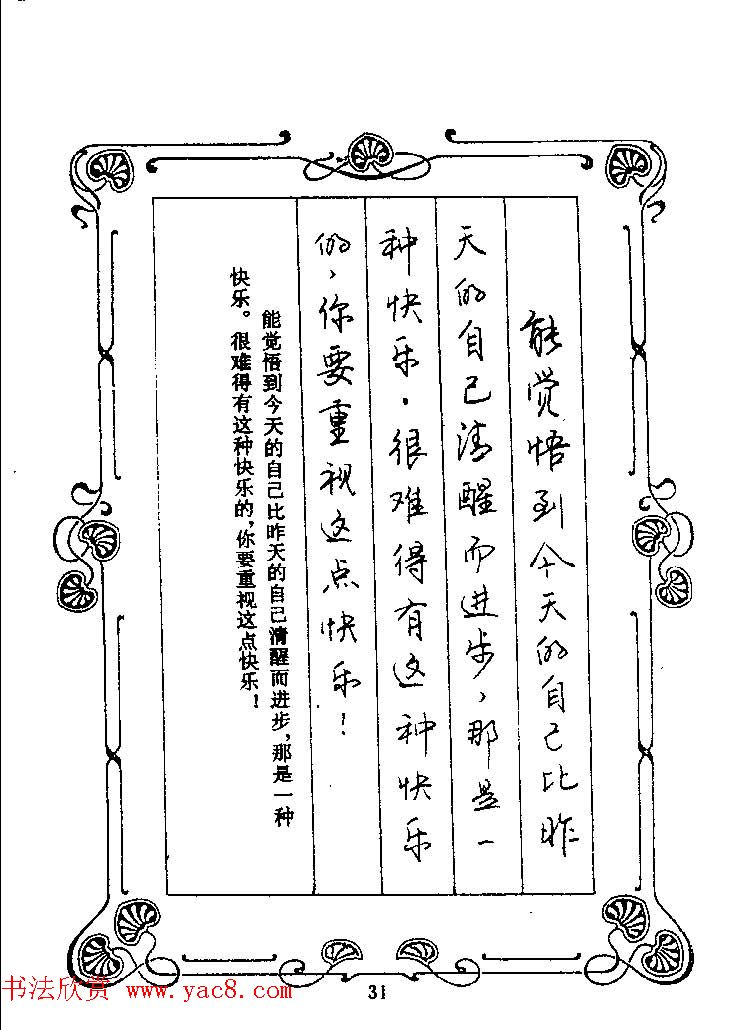 能觉悟到今天的自己比昨
天的自己清醒而进步，那是一
种快乐。很难得有这种快乐
的，你要重视这点快乐！
能觉悟到今天的自己比昨天的自己清醒而进步，那是一种
快乐。很难得有这种快乐的，你要重视这点快乐！
31
书法欣赏 www.yac8.com